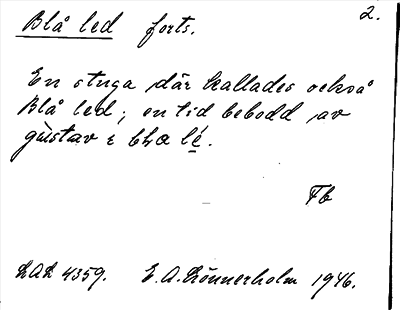 Blå led forts. 2.
En stuga där kallades också
Blå led; en tid bebodd av
gùstav
Fb
4359. E. A. Lönnerholm 1946.